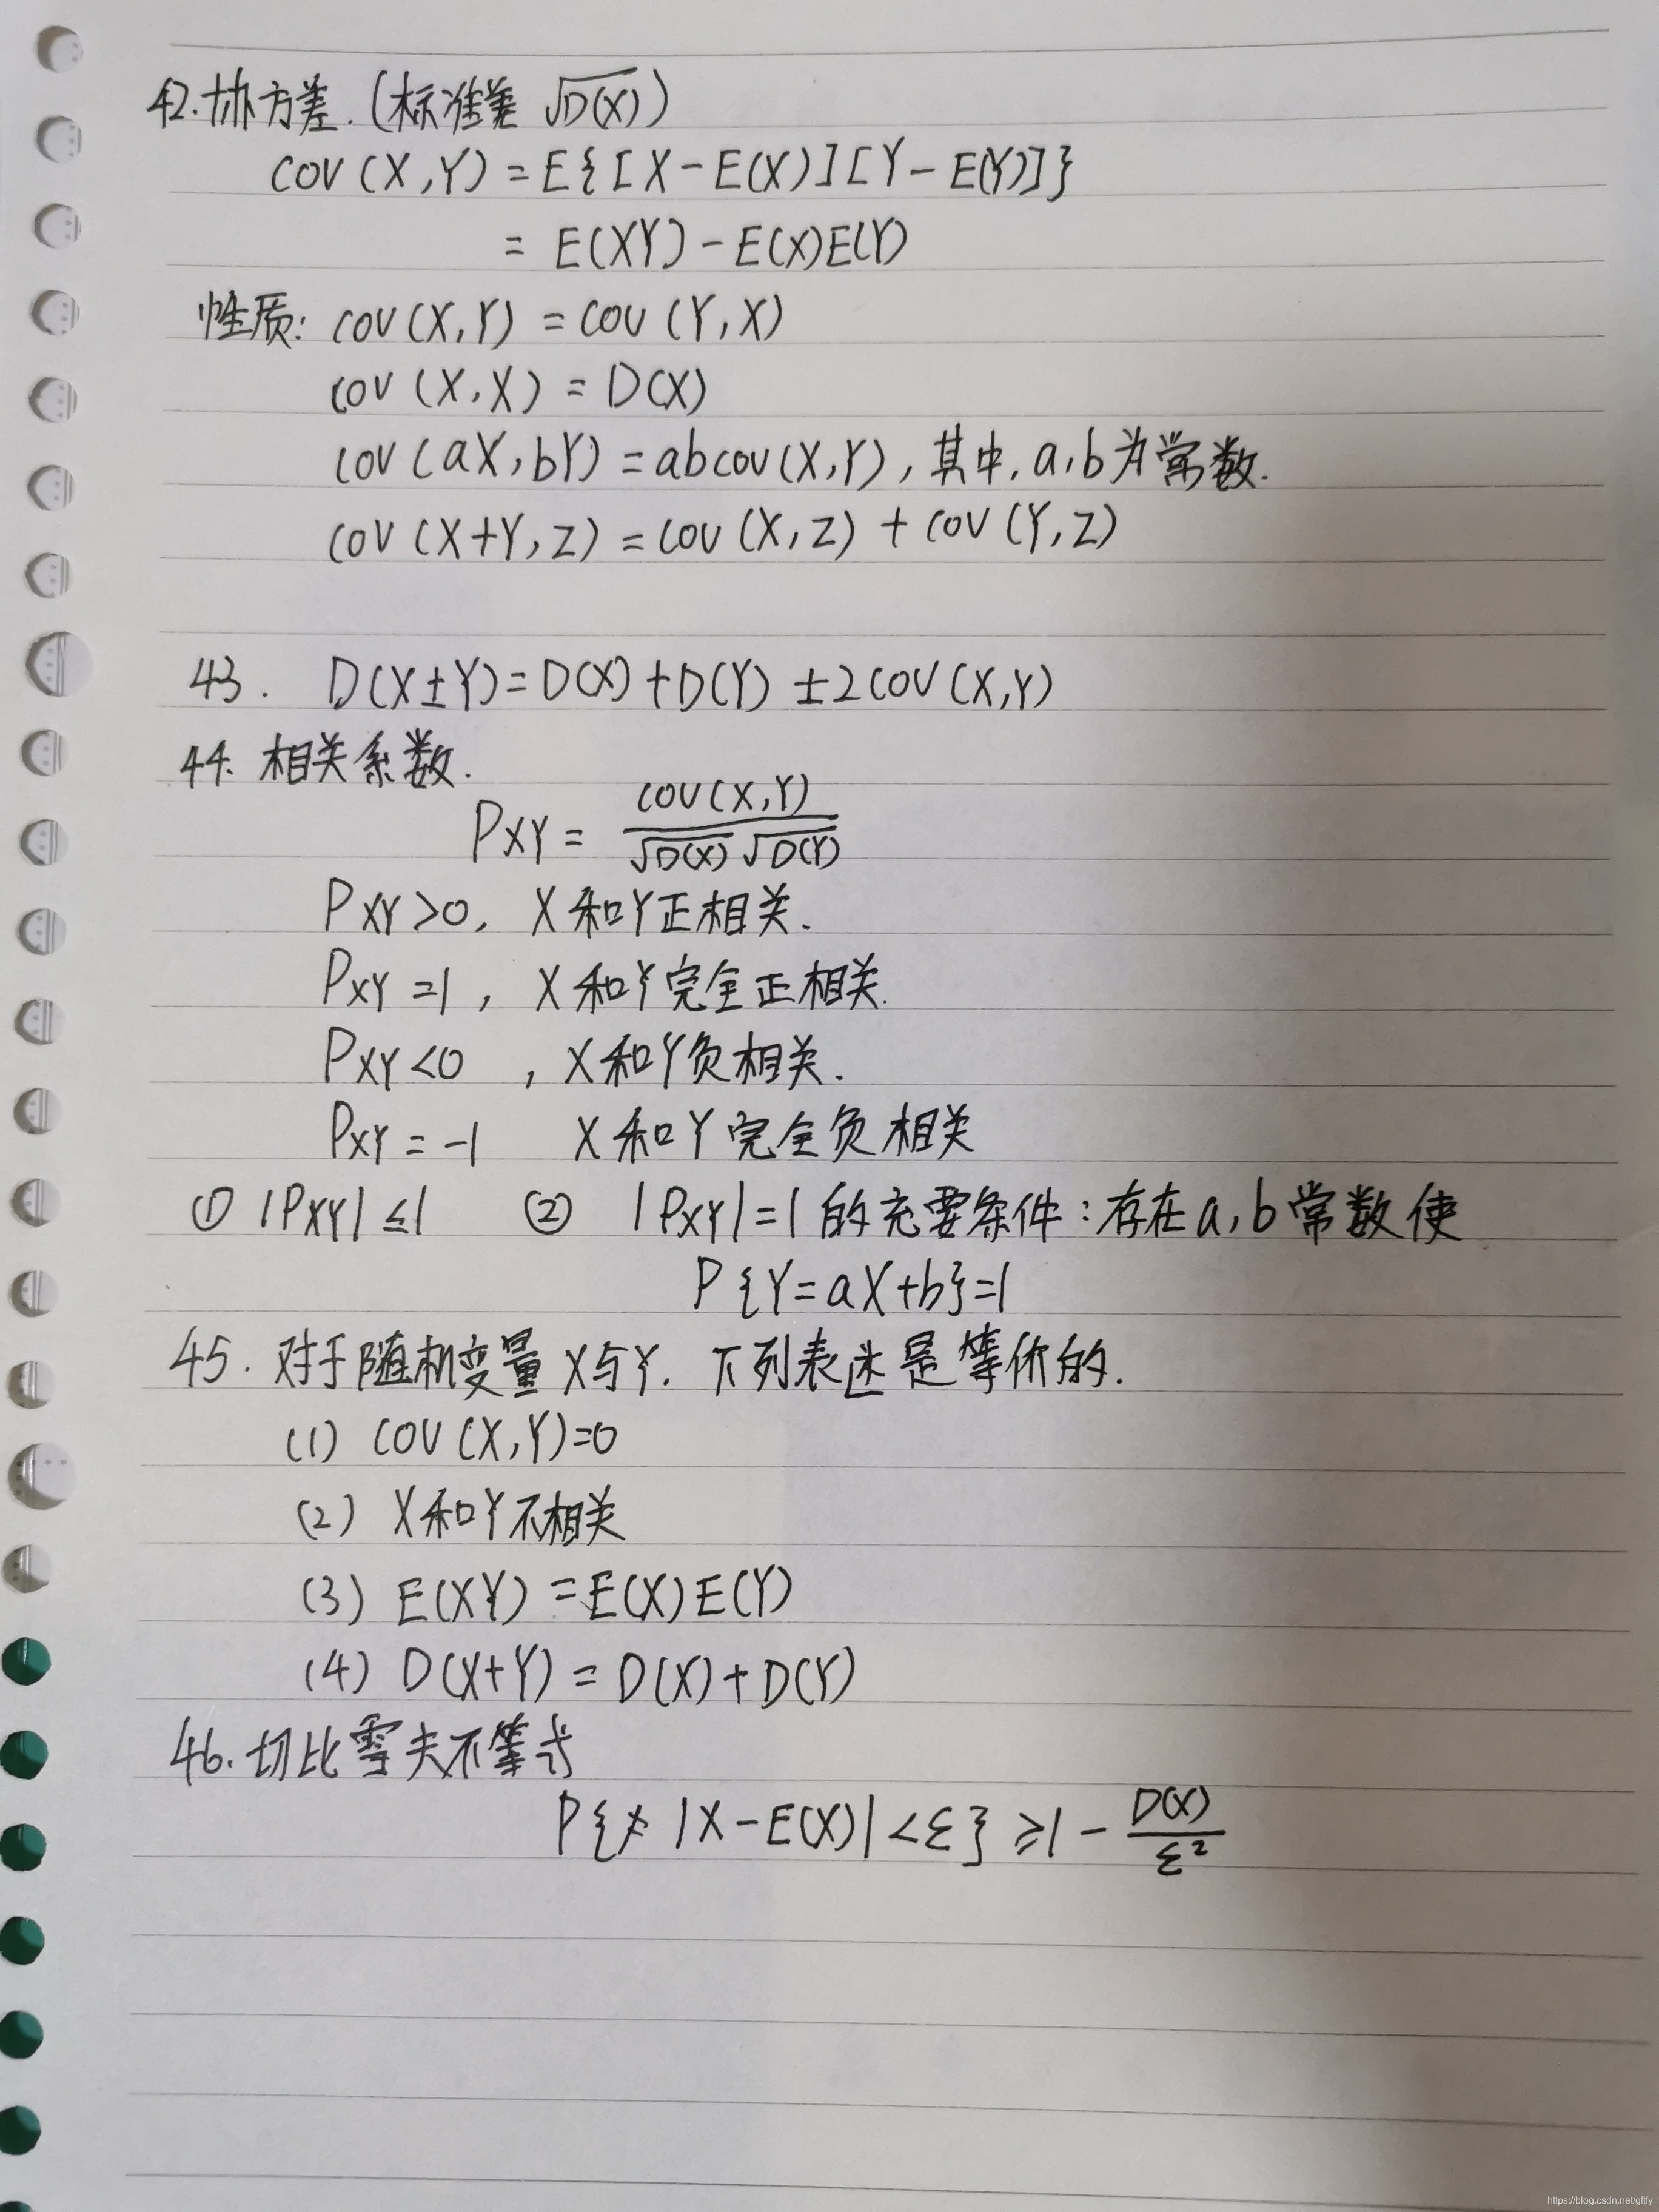 42.协方差.(标准差 √D(X))
COV(X,Y)=E{[X-E(X)][Y-E(Y)]}
= E(XY)-E(X)E(Y)
性质: COV(X,Y) = COV (Y,X)
COV (X,X) = D(X)
COV(aX,bY)=abcov(X,Y),其中,a,b为常数.
COV(X+Y,Z)=COV(X,Z)+COV(Y,Z)
43. D(X±Y)=D(X)+D(Y)±2COV(X,Y)
44. 相关系数.
PXY = COV(X,Y) / √D(X) √D(Y)
PXY>0, X和Y正相关.
PXY=1, X和Y完全正相关.
PXY<0 ,X和Y负相关.
PXY=-1 X和Y完全负相关
① |PXY|≤1 ② |PXY|=1的充要条件:存在a,b常数使
P{Y=aX+b}=1
45.对于随机变量X与Y.下列表述是等价的.
(1) COV(X,Y)=0
(2) X和Y不相关
(3) E(XY)=E(X)E(Y)
(4) D(X+Y)=D(X)+D(Y)
46.切比雪夫不等式
P{|X-E(X)|<ε}≥1-D(X)/ε²
https://blog.csdn.net/gftfy